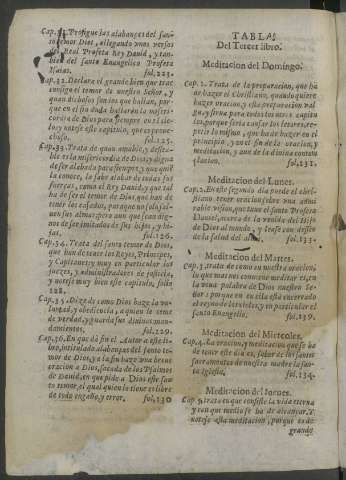 Cap. 31. Prosigue las alabanças del san-
to temor de Dios, allegando unos versos
del Real Profeta Rey Dauid, y tan-
bien del santo Euangelico Profeta
Isaias. fol. 223.
Cap. 32. Declara el grande bien que trae
consigo el temor de nuestro Señor, y
quan dichosos son los que
en el
cordia de Dios para siempre en el cie-
lo: y note se este capitulo, que es proue-
choso. fol. 125.
Cap. 33. Trata de quan amable, y desea-
ble es la misericordia de Dios: y digna
de ser alabada para siempre, y que quiẽ
la conoce, la sabe alabar de todas sus
fuerças, como el Rey Dauid, y que tal
ha de ser el temor de Dios, que han de
tener los casados, para que no solo sal-
uen sus almas, pero aun que sean dig-
nos de ser imitados de sus hijos, y hi-
jas. fol. 126.
Cap. 34. Trata del santo temor de Dios,
que han de tener los Reyes, Principes,
y Capitanes: y muy en particular los
juezes, y administradores de justicia,
y notese muy bien este capitulo, folio
228.
Cap. 35. Dize de como Dios haze la vo-
luntad, y obediencia, a quien le teme
de verdad, y guarda sus diuinos man-
damientos. fol. 229.
Cap. 36. En que da fin el Autor a este li-
bro, intitulado alabanças del santo te-
mor de Dios, y a la fin haze una breue
oracion a Dios, sacada de los Psalmos
de Dauid, en que pide a Dios este san-
to temor, el qual quien le tiene es libre
de todo engaño, y error. fol. 130
TABLA
Del Tercer libro.
Meditacion del Domingo.
Cap. 1. Trata de la preparacion, que ha
de hazer el Christiano, quando quiere
hazer oracion, y esta preparacion val-
ga y sirua para todos los siete capitu-
los, porque seria cansar los letores, re-
petir lo mismo, que ha de hazer en el
principio, y en el fin de la oracion, y
meditacion, y aun de la diuina contem
placion. fol, 131.
Meditacion del Lunes.
Cap. 2. En este segundo dia puede el chri-
stiano tener oracion sobre una admi
rable vision, que tuuo el santo Profeta
Daniel, acerca de la venida del Hijo
de Dios al mundo, y tense con desseo
de la salud del alma. fol. 133.
Meditacion del Martes.
Cap. 3. trata de como en nuestra oracion,
lo que mas nos conuiene meditar es, en
la viua palabra de Dios nuestro Se-
ñor: porque en en ella està encerrado
el reyno de los cielos, y en particular el
santo Euangelio. fol. 139.
Meditacion del Miercoles.
Cap, 4. La oracion, y meditacion que se ha
de tener este dia es, sobre de los santos
Sacramentos de nuestra madre la san-
ta Iglesia, fol, 134.
Meditacion del Iueues.
Cap 5. trata en que consiste la vida eterna
y con que medio se ha de alcançar. Y
notese esta meditacion, porque es de
grande